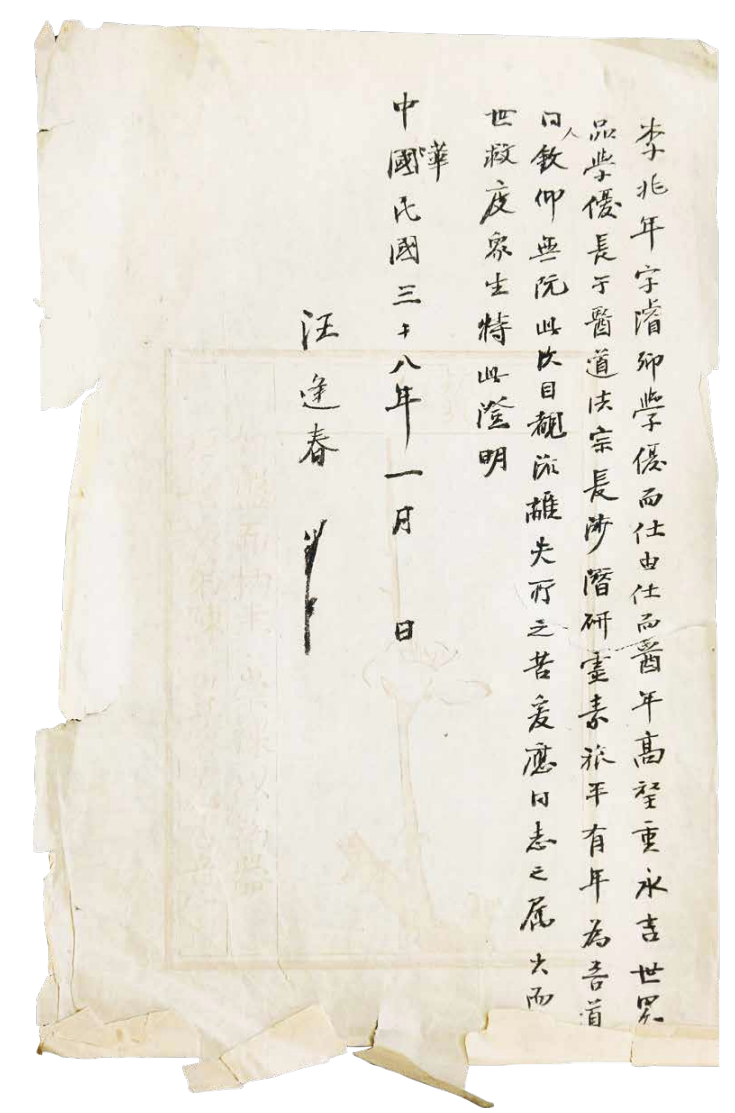 李兆年字濬卿學優而仕由仕而醫年高望重永吉世
品學優長于醫道法宗長沙潛研靈素旅平有年為吾道
同人欽仰無阮此次目覩流離失所之苦爰應同志之屬出而
世救度眾生特此證明
中華民國三十八年一月 日
汪逢春